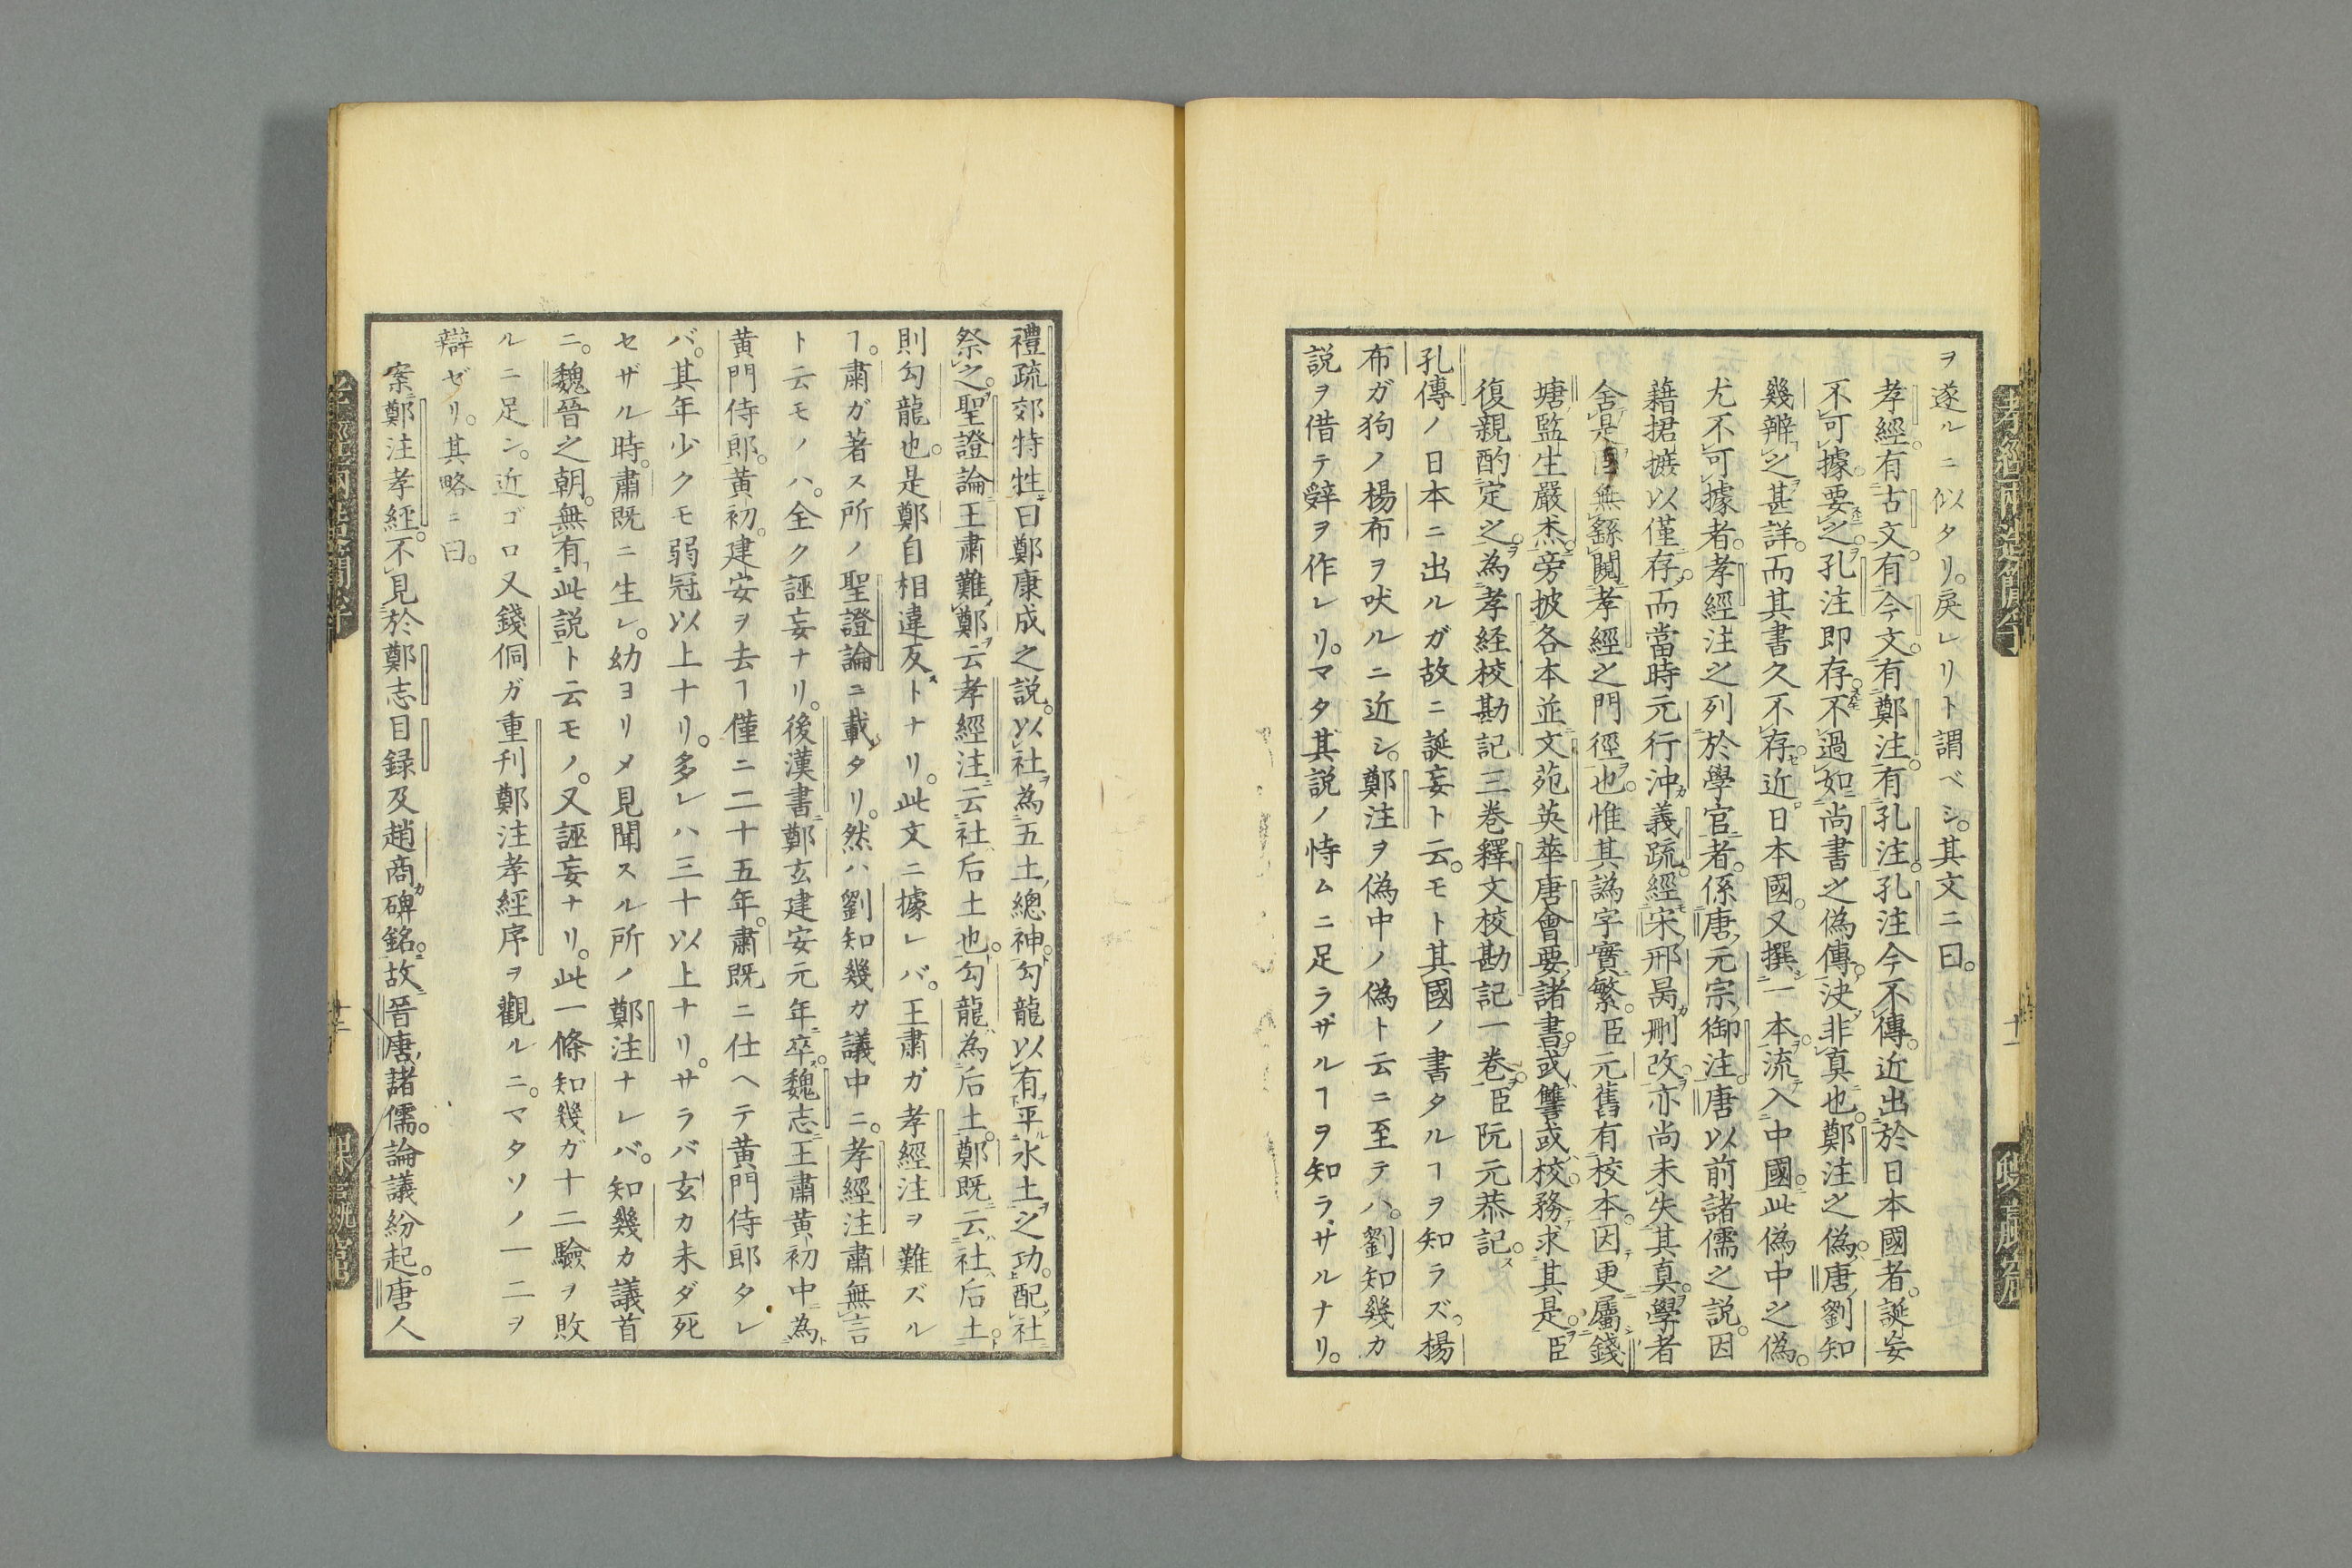 ヲ遂ルニ似タリ。戻レリト謂ベシ。其文ニ曰。
孝經。有古文。有今文。有鄭注。有孔注。孔注今不傳。近出於日本國者。誕妄
不可據。要之。孔注即存。不過如尚書之偽傳。決非真也。鄭注之偽。唐劉知
幾辨之甚詳。而其書久不存。近日本國。又撰一本。流入中國。此偽中之偽。
尤不可據者。孝經注之列於學官者。係唐元宗御注。唐以前諸儒之説。因
藉捃摭以僅存。而當時元行沖義疏。經宋邢昺刪改。亦尚未失其真。學者
舍是固無繇闚孝經之門徑也。惟其譌字實繁。臣元舊有校本。因更屬錢
塘監生嚴杰。旁披各本並文苑英華唐會要諸書。或讐或校。務求其是。臣
復親酌定之。為孝経校勘記三巻釋文校勘記一巻。臣阮元恭記。
孔傳ノ日本ニ出ルガ故ニ誕妄ト云。モト其國ノ書タルヿヲ知ラズ。楊
布ガ狗ノ楊布ヲ吠ルニ近シ。鄭注ヲ偽中ノ偽ト云ニ至テハ。劉知幾カ
説ヲ借テ辤ヲ作レリ。マタ其説ノ恃ムニ足ラザルヿヲ知ラザルナリ。
十一
禮疏郊特牲曰鄭康成之説。以社為五土總神。勾龍以有平水土之功。配社
祭之。聖證論王肅難鄭云孝經注云社后土也。勾龍為后土。鄭既云社后土。
則勾龍也。是鄭自相違反トナリ。此文ニ據レバ。王肅ガ孝經注ヲ難ズル
ヿ。肅ガ著ス所ノ聖證論ニ載タリ。然ハ劉知幾カ議中ニ。孝經注肅無言
ト云モノハ。全ク誣妄ナリ。後漢書鄭玄建安元年卒。魏志王肅黄初中為
黄門侍郎。黄初。建安ヲ去ヿ僅ニ二十五年。肅既ニ仕ヘテ黄門侍郎タレ
バ。其年少クモ弱冠以上ナリ。多レハ三十以上ナリ。サラバ玄カ未ダ死
セザル時。肅既ニ生レ。幼ヨリメ見聞スル所ノ鄭注ナレバ。知幾カ議首
ニ。魏晉之朝。無有此説ト云モノ。又誣妄ナリ。此一條知幾ガ十二驗ヲ敗
ルニ足ン。近ゴロ又錢侗ガ重刊鄭注孝經序ヲ觀ルニ。マタソノ一二ヲ
辯ゼリ。其略ニ曰。
案鄭注孝経。不見於鄭志目録及趙商碑銘。故晉唐諸儒。論議紛起。唐人